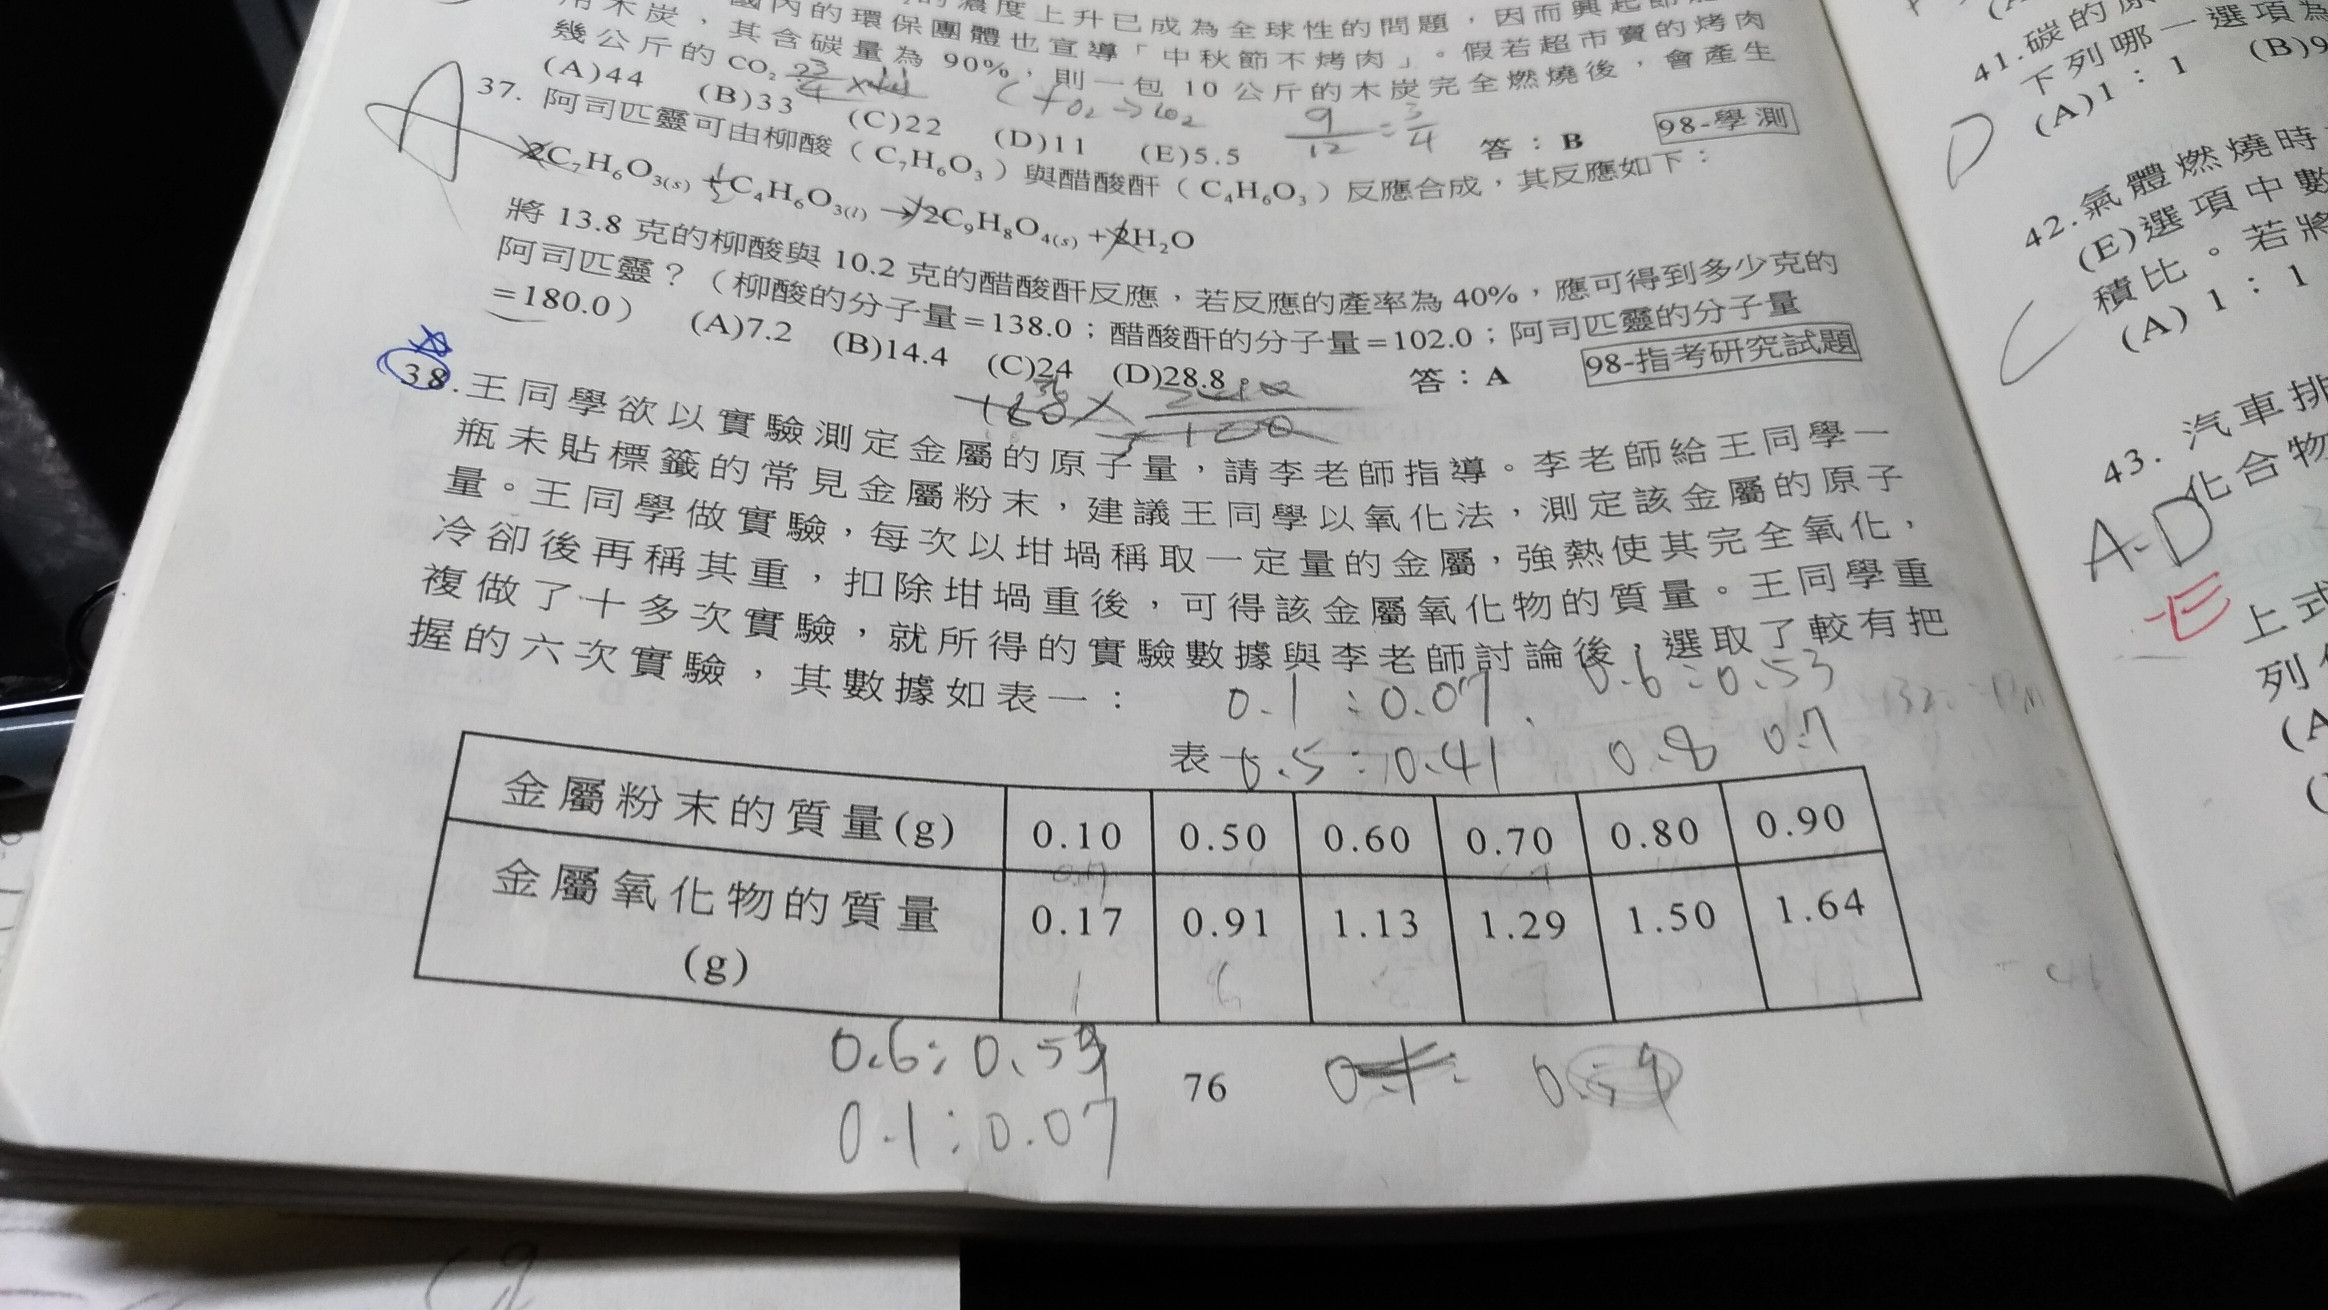 國內的環保團體也宣導「中秋節不烤肉」。假若超市賣的烤肉
的濃度上升已成為全球性的問題,因而興起節
用木炭,其含碳量為90%,則一包10公斤的木炭完全燃燒後,會產生
幾公斤的CO₂
(A)44 (B)33 (C)22 (D)11 (E)5.5 答:B 98-學測
C+O₂→CO₂
9/12=3/4
A
37. 阿司匹靈可由柳酸(C₇H₆O₃)與醋酸酐(C₄H₆O₃)反應合成,其反應如下:
2C₇H₆O₃(s)+C₄H₆O₃(l)→2C₉H₈O₄(s)+H₂O
將13.8克的柳酸與10.2克的醋酸酐反應,若反應的產率為40%,應可得到多少克的
阿司匹靈?(柳酸的分子量=138.0;醋酸酐的分子量=102.0;阿司匹靈的分子量
=180.0) (A)7.2 (B)14.4 (C)24 (D)28.8 答:A 98-指考研究試題
38.王同學欲以實驗測定金屬的原子量,請李老師指導。李老師給王同學一
瓶未貼標籤的常見金屬粉末,建議王同學以氧化法,測定該金屬的原子
量。王同學做實驗,每次以坩堝稱取一定量的金屬,強熱使其完全氧化,
冷卻後再稱其重,扣除坩堝重後,可得該金屬氧化物的質量。王同學重
複做了十多次實驗,就所得的實驗數據與李老師討論後,選取了較有把
握的六次實驗,其數據如表一:
0.1:0.07 0.6:0.53
表一
0.5:0.41 0.8 0.7
金屬粉末的質量(g) 0.10 0.50 0.60 0.70 0.80 0.90
金屬氧化物的質量 0.17 0.91 1.13 1.29 1.50 1.64
(g)
0.6:0.53
0.1:0.07
76
41.碳的原
下列哪一選項為
(A)1:1 (B)9
D
42.氣體燃燒時
(E)選項中數
積比。若將
(A)1:1
C
43. 汽車排
化合物
A-D
E
上式
列
(A